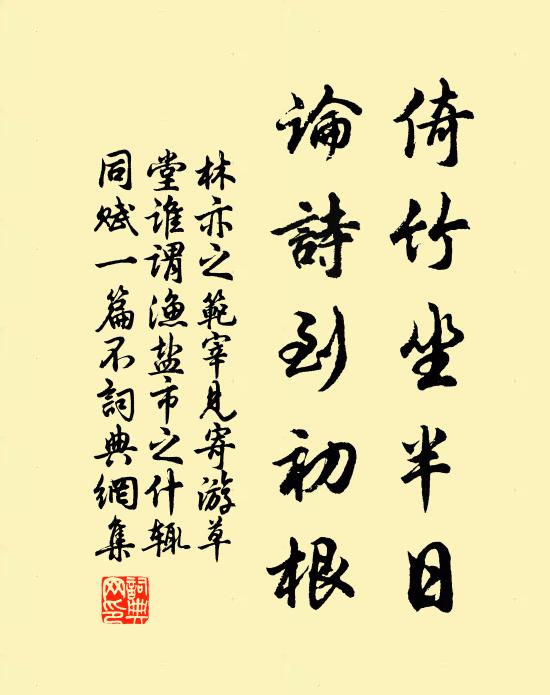 倚竹坐半日
論詩到初根
林亦之範宰見寄游草
堂誰謂漁盐市之什輒
同赋一篇不詞典網集
詞典網印